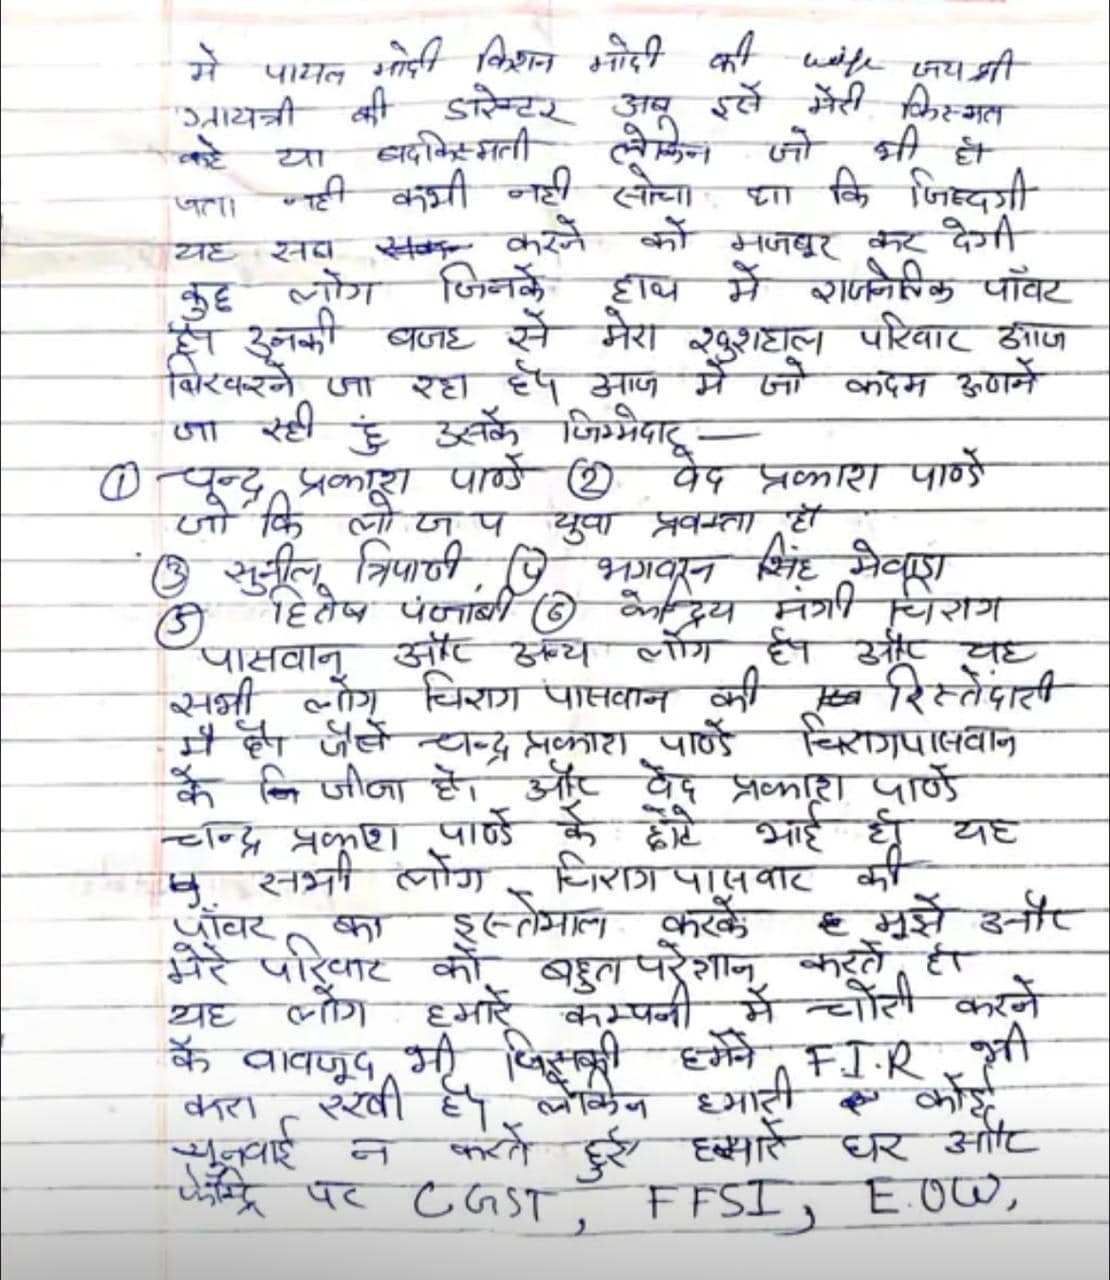 मे पायल मोदी किशन मोदी की wife जय श्री
गायत्री की डारेक्टर अब इसे मेरी किस्मत
कहे या बदकिस्मती लेकिन जो भी हो
पता नही कभी नही सोचा था कि जिन्दगी
यह सब करने को मजबूर कर देगी
कुछ लोग जिनके हाथ में राजनेतिक पॉवर
है उनकी बजह से मेरा खुशहाल परिवार आज
बिखरने जा रहा है आज में जो कदम उठाने
जा रही हुं उसके जिम्मेदार —
① चन्द्र प्रकाश पाण्डे ② वेद प्रकाश पाण्डे
जो कि लो ज प युवा प्रवक्ता है
③ सुनील त्रिपाठी ④ भगवान सिंह मेवाडा
⑤ हितेष पंजाबी ⑥ केन्द्रिय मंत्री चिराग
पासवान और अन्य लोग है और यह
सभी लोग चिराग पासवान की रिस्तेदारी
मै है जैसे चन्द्र प्रकाश पाण्डे चिराग पासवान
के जीजा है। और वेद प्रकाश पाण्डे
चन्द्र प्रकाश पाण्डे के छोटे भाई है यह
सभी लोग चिराग पासवाट की
पॉवर का इस्तेमाल करके मुझे और
मेरे परिवार को बहुत परेशान करते है।
यह लोग हमारे कम्पनी में चोरी करने
के वावजूद भी जिसकी हमने F.I.R भी
करा रखी है लेकिन हमारी कोई
सुनवाई न करते हुए हमारे घर और
पर CGST, FFSI, E.OW,